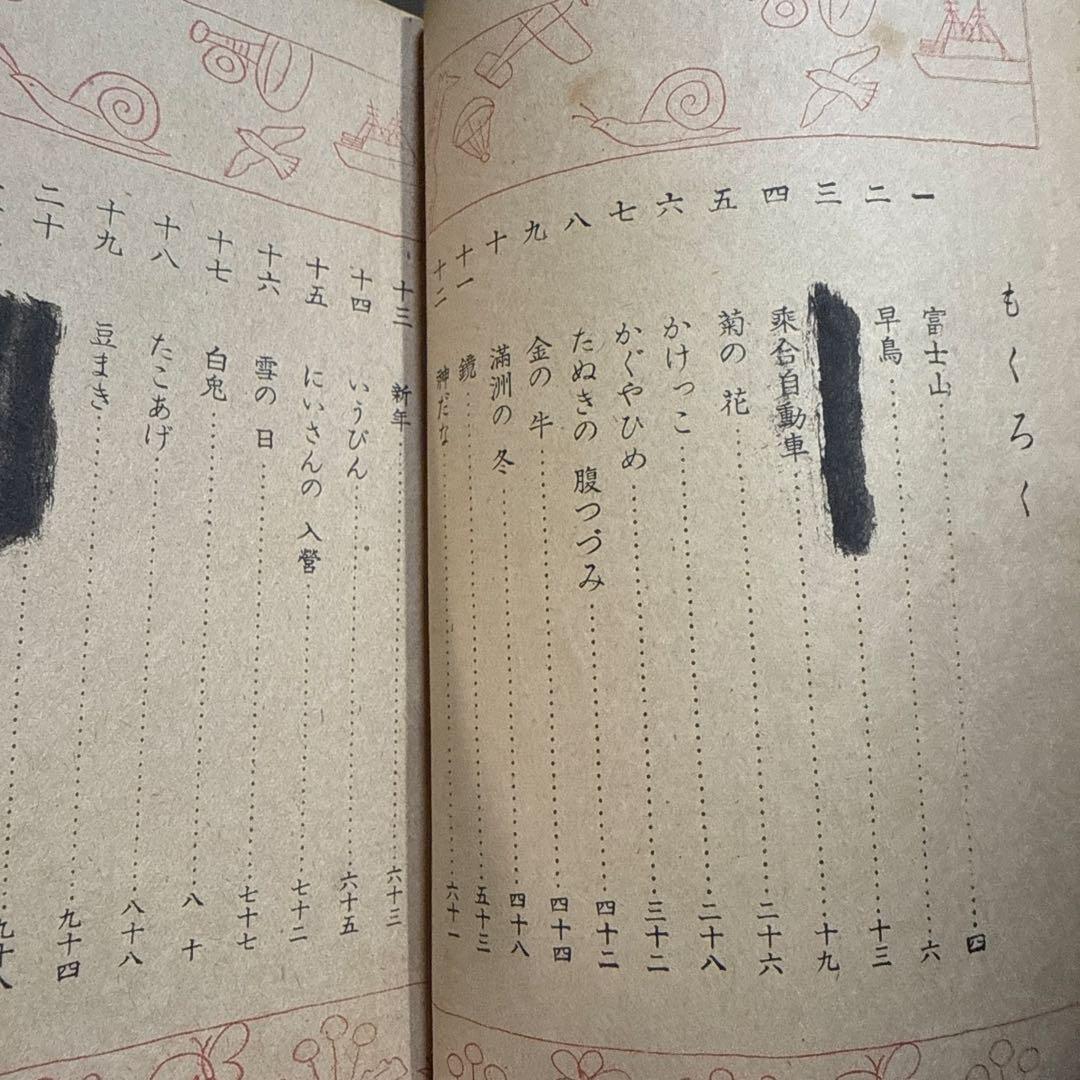 もくろく
一 富士山………四
二 早鳥………六
三 ………十三
四 乗合自動車………十九
五 菊の 花………二十六
六 かけっこ………二十八
七 かぐやひめ………三十二
八 たぬきの 腹つづみ………四十二
九 金の 牛………四十四
十 滿洲の 冬………四十八
十一 鏡………五十三
十二 神だな………六十一
十三 新年………六十三
十四 いうびん………六十五
十五 にいさんの 入營………七十二
十六 雪の 日………七十七
十七 白兎………八十
十八 たこあげ………八十八
十九 豆まき………九十四
二十 ………九十八